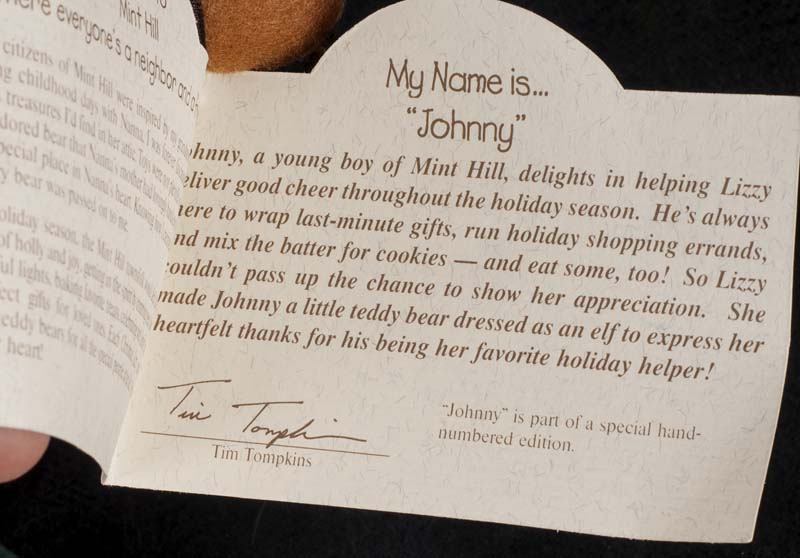 Mint Hill
where everyone's a neighbor and a
citizens of Mint Hill were inspired by my
childhood days with Nanna. I was
treasures I'd find in her attic. Toys were
adored bear that Nanna's mother had
special place in Nanna's heart. Knowing
bear was passed on to me.
holiday season, the Mint Hill
of holly and joy, getting
lights, baking favorite treats,
gifts for loved ones. Each
teddy bears for all the special
heart!
My Name is...
"Johnny"
Johnny, a young boy of Mint Hill, delights in helping Lizzy
deliver good cheer throughout the holiday season. He's always
here to wrap last-minute gifts, run holiday shopping errands,
and mix the batter for cookies — and eat some, too! So Lizzy
couldn't pass up the chance to show her appreciation. She
made Johnny a little teddy bear dressed as an elf to express her
heartfelt thanks for his being her favorite holiday helper!
Tim Tompkins
Tim Tompkins
"Johnny" is part of a special hand-
numbered edition.